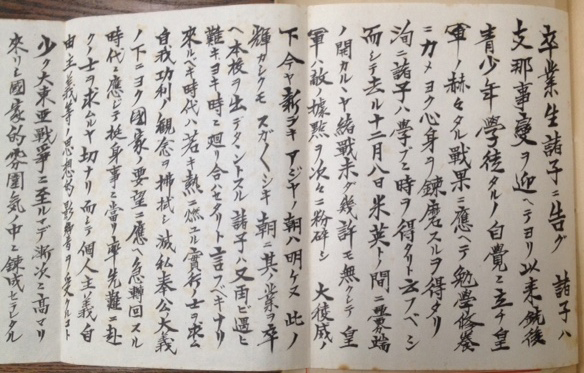 卒業生諸子ニ告グ 諸子ハ
支那事變ヲ迎ヘテヨリ以来銃後
青少年學徒タルノ自覺ニ立チ皇
軍ノ赫々タル戦果ニ應ヘテ勉學修養
ニ力メヨク心身ヲ錬磨スルヲ得タリ
洵ニ諸子ハ學ブニ時ヲ得タリト云フベシ
而シテ去ル十二月八日米英トノ間ニ釁端
ノ開カルヽヤ緒戦未ダ幾許モ無クシテ皇
軍ハ敵據點ヲ次々ニ粉砕シ 大稜威ノ
下今ヤ新シキアジヤノ朝ハ明ケヌ 此ノ
輝カシクモスガ〱シキ朝ニ其ノ業ヲ卒
ヘ本校ヲ出デタヽントスル諸子ハ又再ビ遇ヒ
難キヨキ時ニ廻リ合ハセタリト言フベキナリ
來ルベキ時代ハ若キ熱ニ燃ユル實行ノ士ヲ求ム
自我功利ノ観念ヲ拂拭シ滅私奉公大義
ノ下ニヨク國家ノ要望ニ應ヘ急轉回スル
時代ニ應ジテ挺身事ニ當リ率先難ニ赴
クノ士ヲ求ムルヤ切ナリ 而シテ個人主義自
由主義等ノ思想的影響ヲ受クルコト
少ク大東亜戦争ニ至ルマデ漸次ニ高マリ
來リシ國家的雰囲気ノ中ニ錬成セラレタル